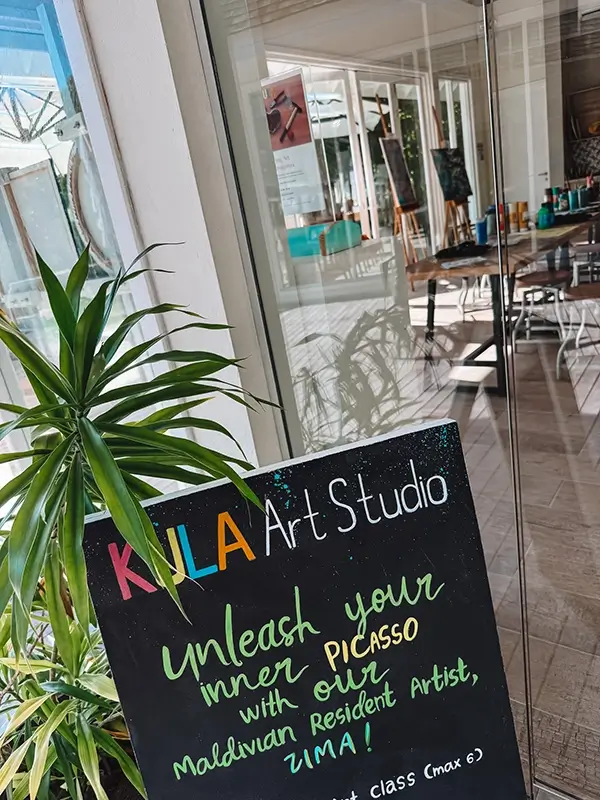 KULA Art Studio
unleash your
inner PICASSO
with our
Maldivian Resident Artist,
ZIMA!
Class (max 6)